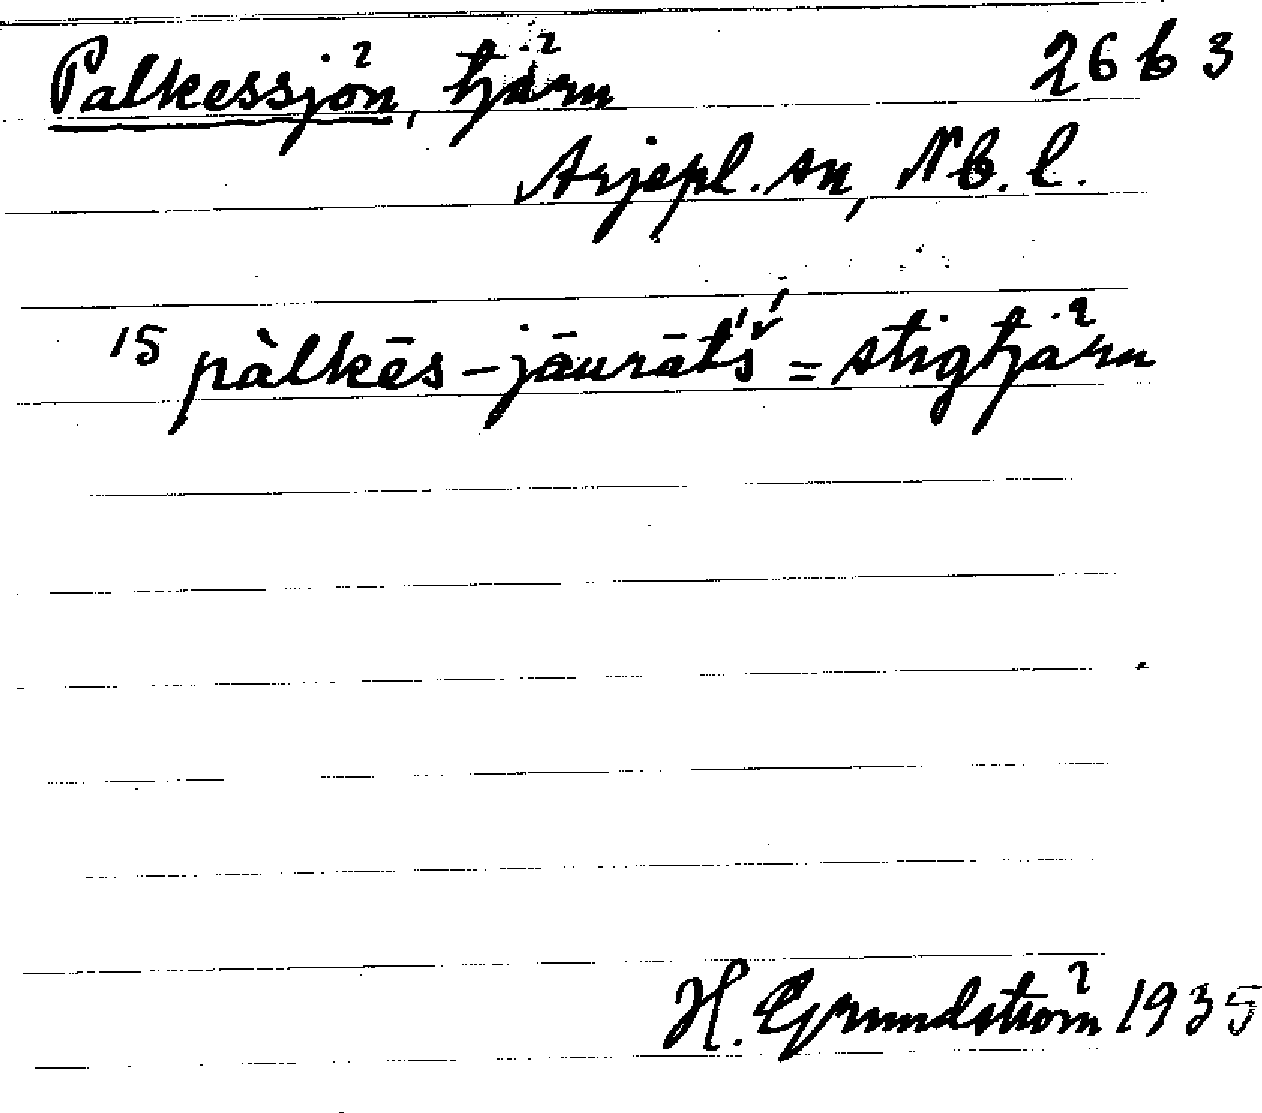 Palkessjön, tjärn 26 b 3
Arjepl. sn, Nb. l.
15 pàlkēs-jāurāt́ś = stigtjärn
H. Grundström 1935